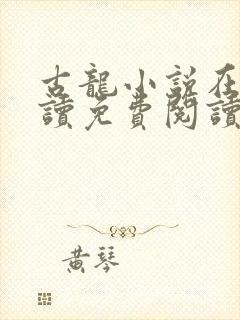 古龍小說在
讀免費閱讀
黃琴